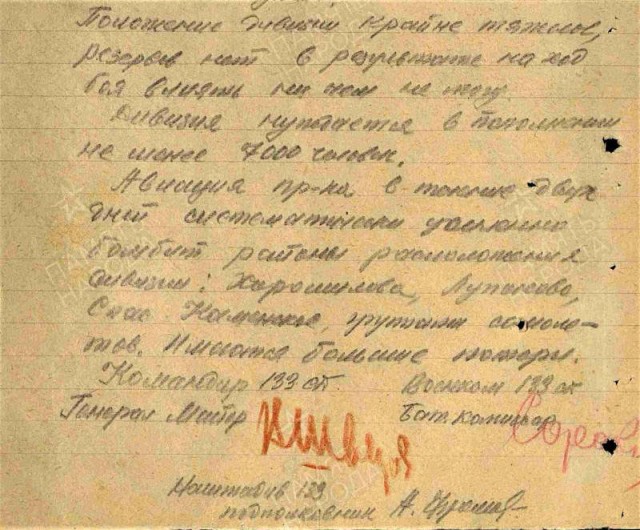 Положение дивизии крайне тяжелое,
резервов нет в результате на ход
боя влиять ни чем не могу.
Дивизия нуждается в пополнении
не менее 7000 человек.
Авиация пр-ка в течение двух
дней систематически усиленно
бомбит районы расположения
дивизии: Лупаново,
Спас Каменское, группами самоле-
тов. Имеются большие потери.
Командир 133 сд Военком 133 сд
Генерал Майор Бат. комиссар
Наштадив 133
подполковник А.